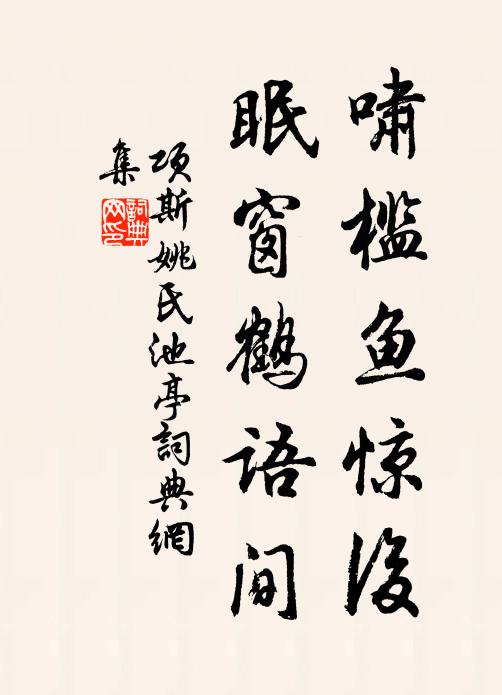 啸槛鱼惊后
眠窗鹤语间
项斯姚氏池亭詞典網
集
詞典
网印